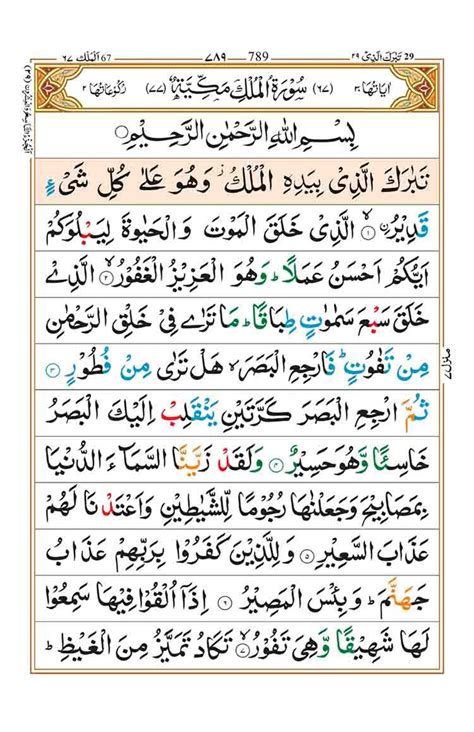 29 تَبٰرَكَ الَّذِىْ ٢٩ 789 ٧٨٩ 67 اَلْمُلْك ٦٧
اٰيَاتُهَا ٣٠ (٦٧) سُوْرَةُ الْمُلْكِ مَكِّيَّةٌ (٧٧) رُكُوْعَاتُهَا ٢
بِسْمِ اللّٰهِ الرَّحْمٰنِ الرَّحِيْمِ
تَبٰرَكَ الَّذِىْ بِيَدِهِ الْمُلْكُ ز وَهُوَ عَلٰى كُلِّ شَىْءٍ
قَدِيْرُ ۙ ١ الَّذِىْ خَلَقَ الْمَوْتَ وَالْحَيٰوةَ لِيَبْلُوَكُمْ
اَيُّكُمْ اَحْسَنُ عَمَلًا ؕ وَهُوَ الْعَزِيْزُ الْغَفُوْرُ ۙ ٢ الَّذِىْ
خَلَقَ سَبْعَ سَمٰوٰتٍ طِبَاقًا ؕ مَا تَرٰى فِىْ خَلْقِ الرَّحْمٰنِ
مِنْ تَفٰوُتٍ ؕ فَارْجِعِ الْبَصَرَ ۙ هَلْ تَرٰى مِنْ فُطُوْرٍ ٣
ثُمَّ ارْجِعِ الْبَصَرَ كَرَّتَيْنِ يَنْقَلِبْ اِلَيْكَ الْبَصَرُ
خَاسِئًا وَّهُوَ حَسِيْرٌ ٤ وَلَقَدْ زَيَّنَّا السَّمَآءَ الدُّنْيَا
بِمَصَابِيْحَ وَجَعَلْنٰهَا رُجُوْمًا لِّلشَّيٰطِيْنِ وَاَعْتَدْنَا لَهُمْ
عَذَابَ السَّعِيْرِ ٥ وَلِلَّذِيْنَ كَفَرُوْا بِرَبِّهِمْ عَذَابُ
جَهَنَّمَ ؕ وَبِئْسَ الْمَصِيْرُ ٦ اِذَاۤ اُلْقُوْا فِيْهَا سَمِعُوْا
لَهَا شَهِيْقًا وَّهِىَ تَفُوْرُ ۙ ٧ تَكَادُ تَمَيَّزُ مِنَ الْغَيْظِ ؕ
منزل ٧